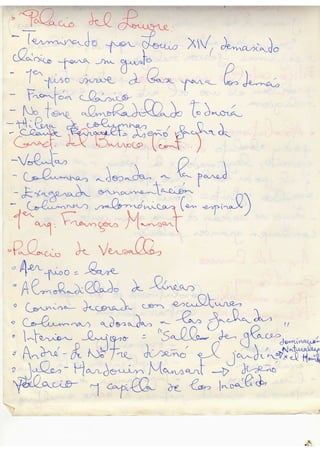 • Palacio del Louvre
- Terminado por Louis XIV, demasiado
clásico para su gusto
- 1er piso sirve de base para los demás
- Frontón clásico
- No tiene almohadillado todavía
- Hilera de columnas
- Claude Perrault diseñó fachada
Caract. del Barroco (cont.)
- Volutas
- Columnas adosadas a la pared
- Exagerada ornamentación
- Columnas salomónicas (en espiral)
1er arq. François Mansart
• Palacio de Versalles
• 1er piso = base
• Almohadillado de líneas
• Cornisa decorada con esculturas
• Columnas adosadas a las fachadas
• Interior lujoso = "Salle des glaces"
• André-le Nôtre diseñó el jardín
dominación
Naturaleza
x el
• Jules-Hardouin Mansart → diseñó
Palacio y capilla de los Inválidos